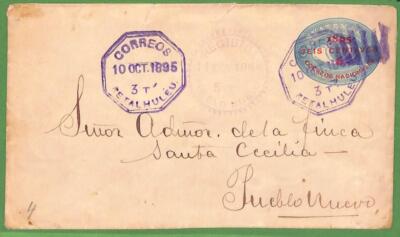 CORREOS
10 OCT. 1895
3 T
RETALHULEU
1895
SEIS CENTAVOS
6
CORREOS NACIONALES
Señor Admor. de la finca
Santa Cecilia—
Pueblo Nuevo.
4